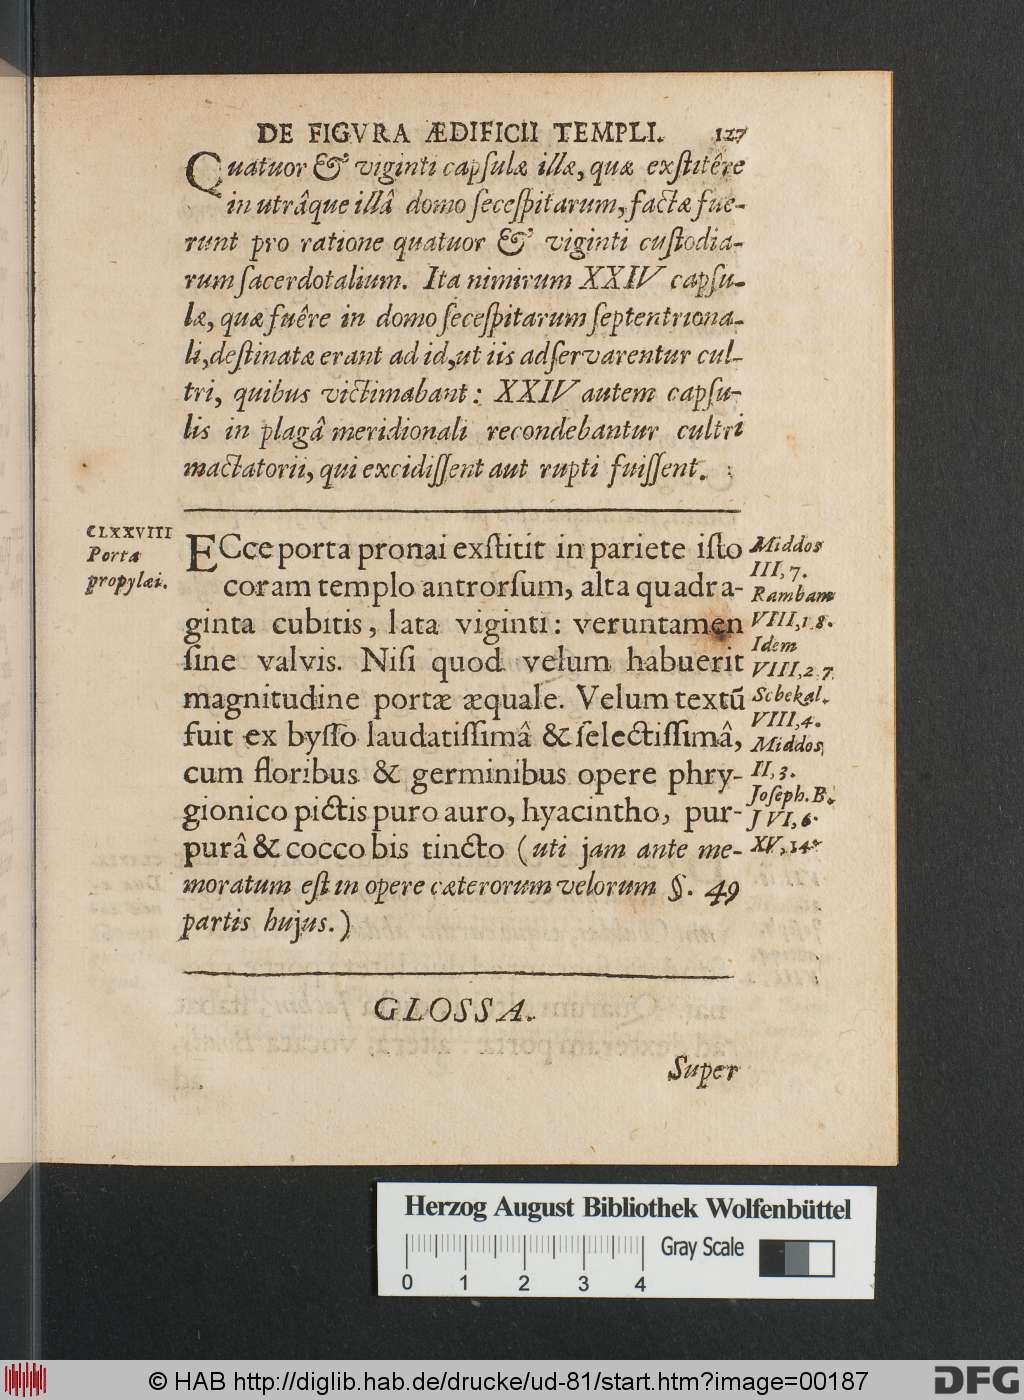 DE FIGVRA ÆDIFICII TEMPLI. 127
Quatuor & viginti capſulæ illæ, quæ exſtitêre
in utrâque illâ domo ſeceſpitarum, factæ fue-
runt pro ratione quatuor & viginti cuſtodia-
rum ſacerdotalium. Ita nimirum XXIV capſu-
læ, quæ fuêre in domo ſeceſpitarum ſeptentriona-
li, deſtinatæ erant ad id, ut iis adſervarentur cul-
tri, quibus victimabant: XXIV autem capſu-
lis in plagâ meridionali recondebantur cultri
mactatorii, qui excidiſſent aut rupti fuiſſent.
CLXXVIII
Porta
propylæi.
ECce porta pronai exſtitit in pariete iſto
coram templo antrorſum, alta quadra-
ginta cubitis, lata viginti: veruntamen
ſine valvis. Niſi quod velum habuerit
magnitudine portæ æquale. Velum textũ
fuit ex byſſo laudatiſſimâ & ſelectiſſimâ,
cum floribus & germinibus opere phry-
gionico pictis puro auro, hyacintho, pur-
purâ & cocco bis tincto (uti jam ante me-
moratum eſt in opere cæterorum velorum §. 49
partis hujus.)
Middos
III, 7.
Rambam
VIII, 18.
Idem
VIII, 27.
Scbekal.
VIII, 4.
Middos
II, 3.
Joſeph. B.
J VI, 6.
XV, 14.
GLOSSA.
Super
Herzog August Bibliothek Wolfenbüttel
Gray Scale
0 1 2 3 4
© HAB http://diglib.hab.de/drucke/ud-81/start.htm?image=00187
DFG